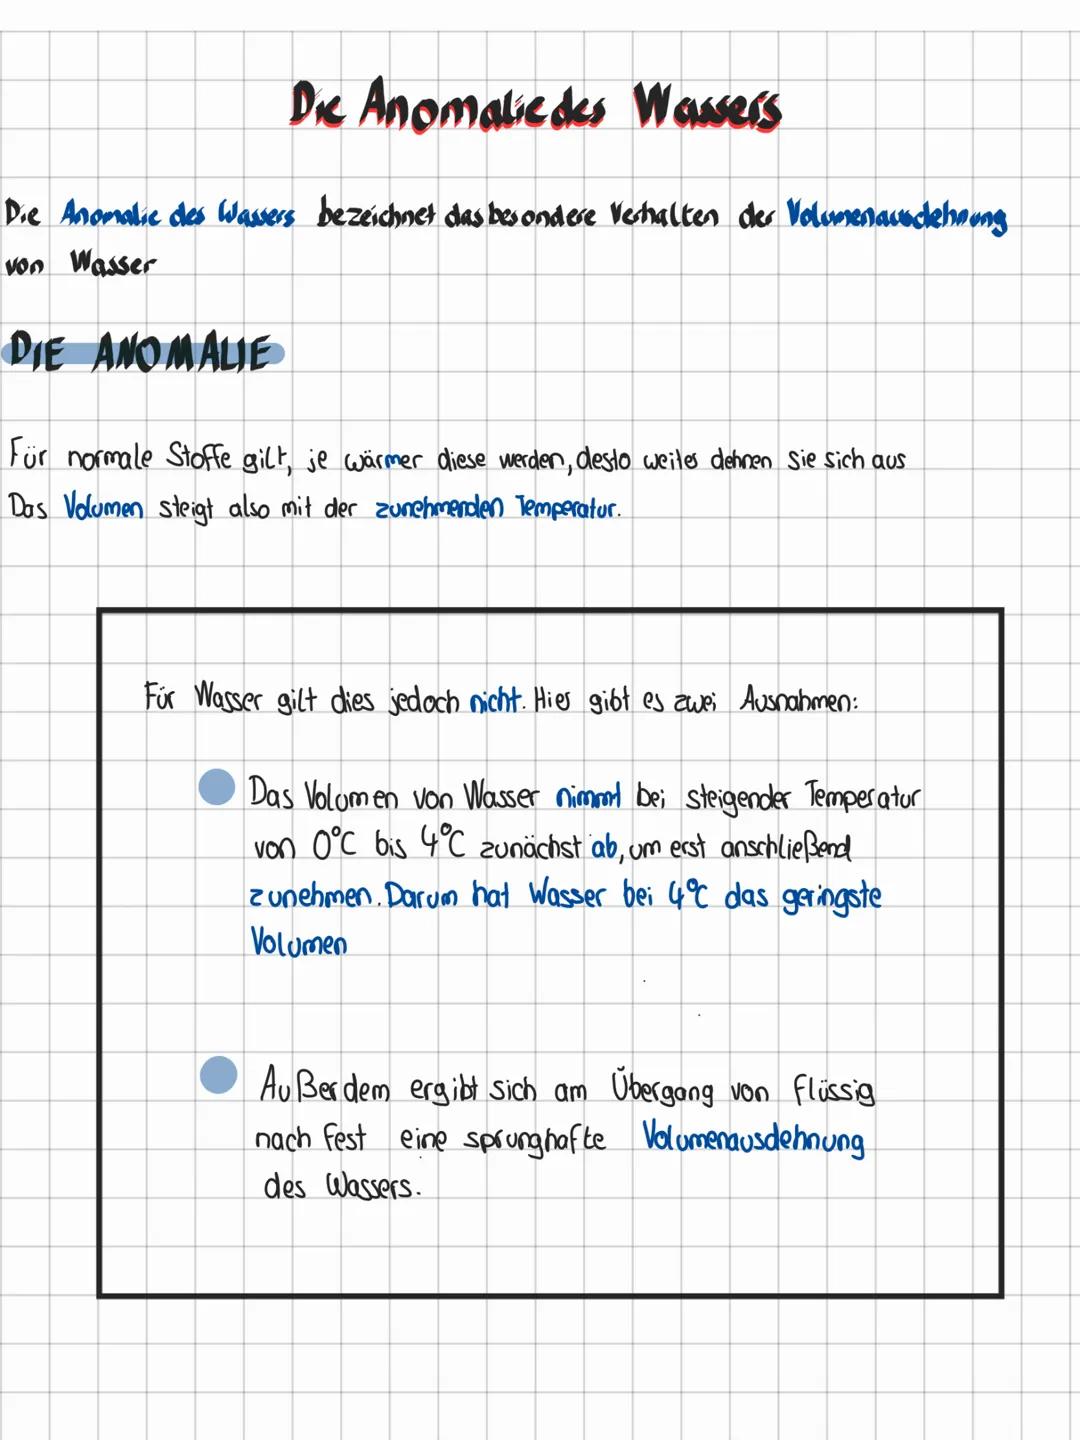 Die Anomalie des Wassers
Die Anomalie des Wassers bezeichnet das besondere Verhalten der Volumenausdehnung
von Wasser
DIE ANOMALIE
Für normale Stoffe gilt, je wärmer diese werden, desto weiter dehnen sie sich aus
Das Volumen steigt also mit der zunehmenden Temperatur.
Für Wasser gilt dies jedoch nicht. Hier gibt es zwei Ausnahmen:
Das Volumen von Wasser nimmt bei steigender Temperatur
von 0°C bis 4°C zunächst ab, um erst anschließend
zunehmen. Darum hat Wasser bei 4°C das geringste
Volumen
Außerdem ergibt sich am Übergang von flüssig
nach fest eine sprunghafte Volumenausdehnung
des Wassers.